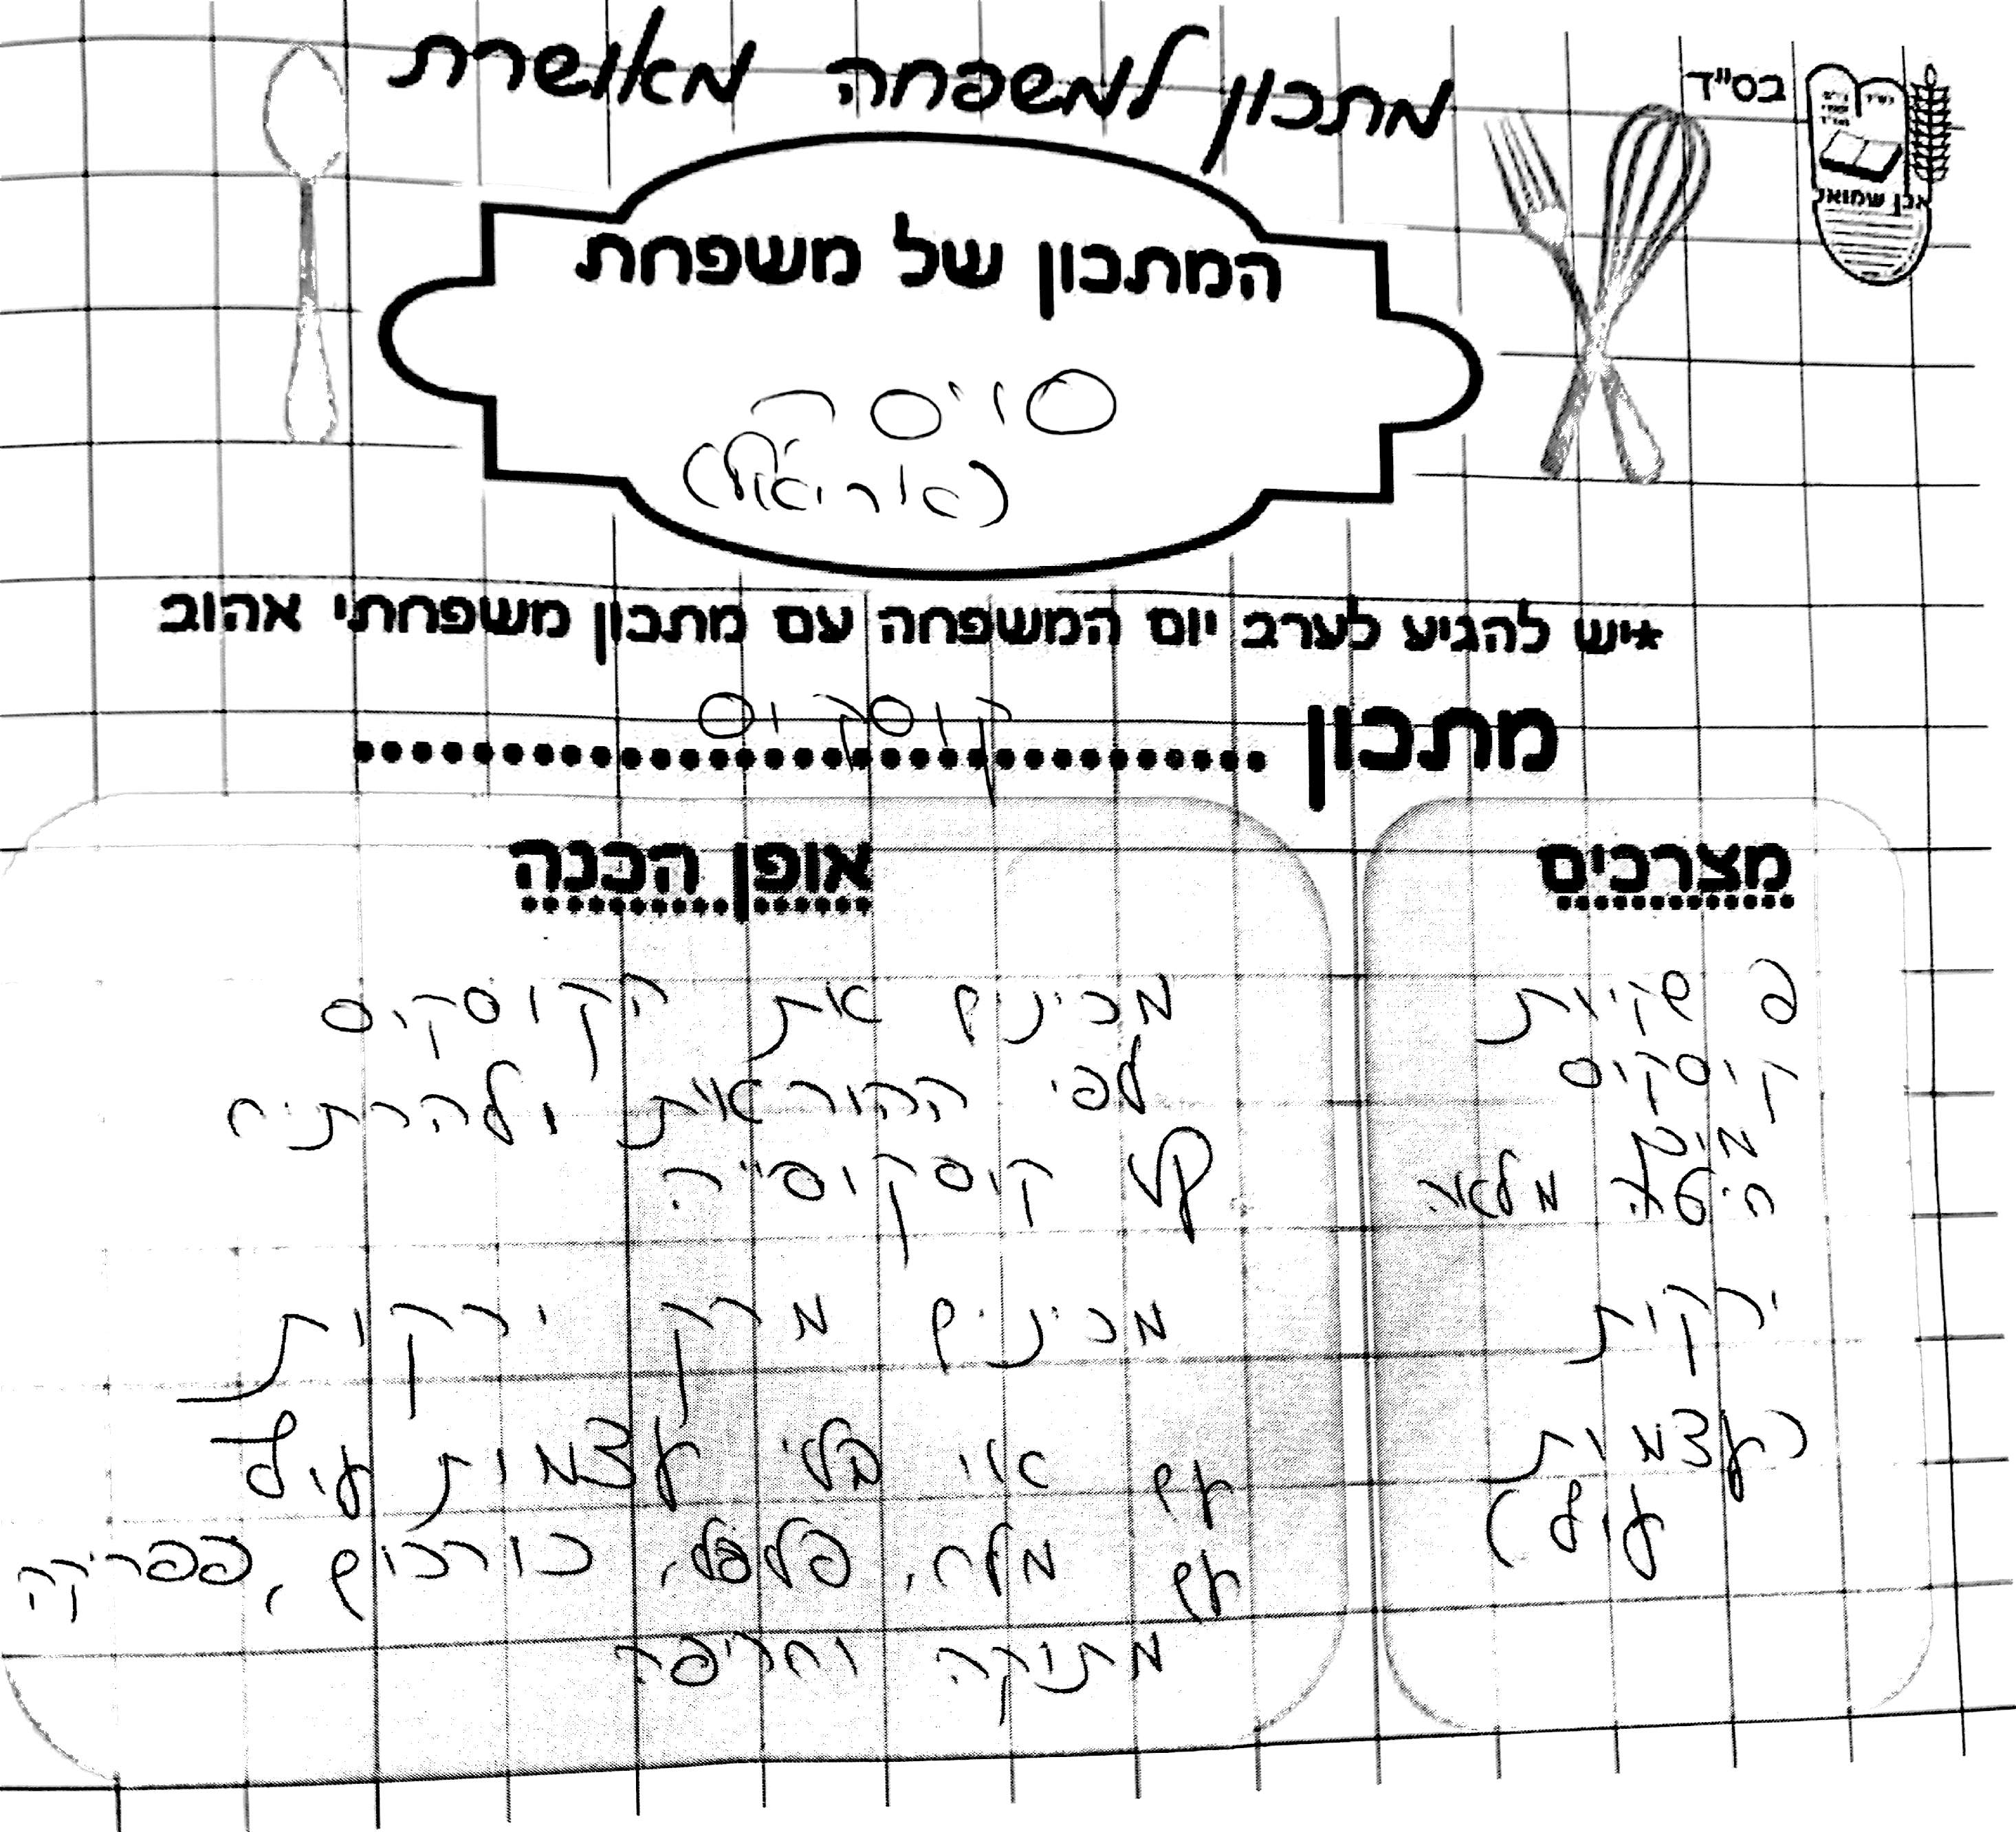 בס"ד
מתכון למשפחה מאושרת
אבן שמואל
המתכון של משפחת
סויסה
(אוריאל)
*יש להגיע לערב יום המשפחה עם מתכון משפחתי אהוב
מתכון קוסקוס
מצרכים
שקיות
קוסקוס
מים
חיטה מלאה
ירקות
(עצמות
עוף)
אופן הכנה
מכינים את הקוסקוס
לפי ההוראות ולהרתיח
על קוסקוסיה
מכינים מרק ירקות
עם או בלי עצמות עוף
עם מלח, פלפל, כורכום, פפריקה
מתוקה וחריפה